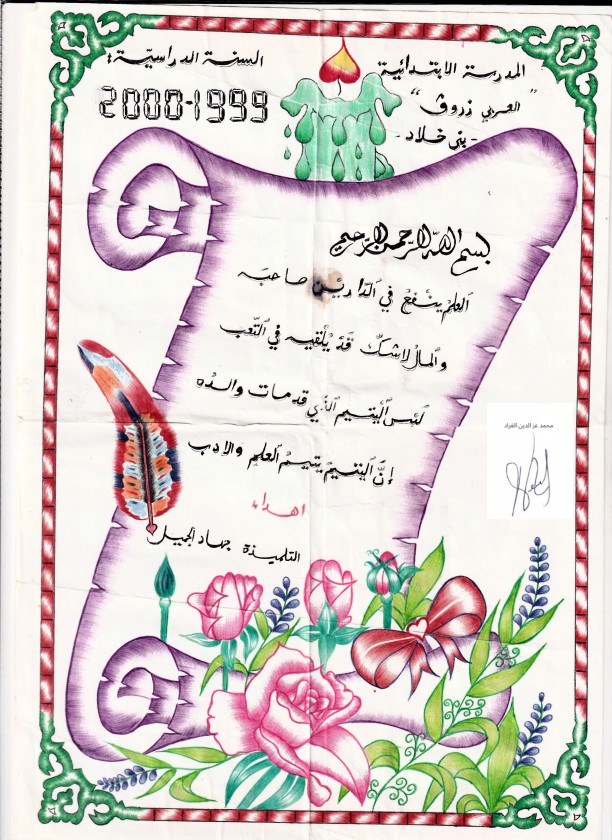 المدرسة الابتدائية
"العربي زروق"
- بني خلاد -
السنة الدراسيّة:
2000-1999
بسم الله الرحمن الرحيم
العلم ينفع في الدّارين صاحبه
والمال لا شكّ قد يلقيه في التّعب
ليس اليتيم الذي قد مات والده
إنّ اليتيم يتيم العلم والأدب
اهداء
التلميذة جهاد الجميل
محمد عز الدين القراد